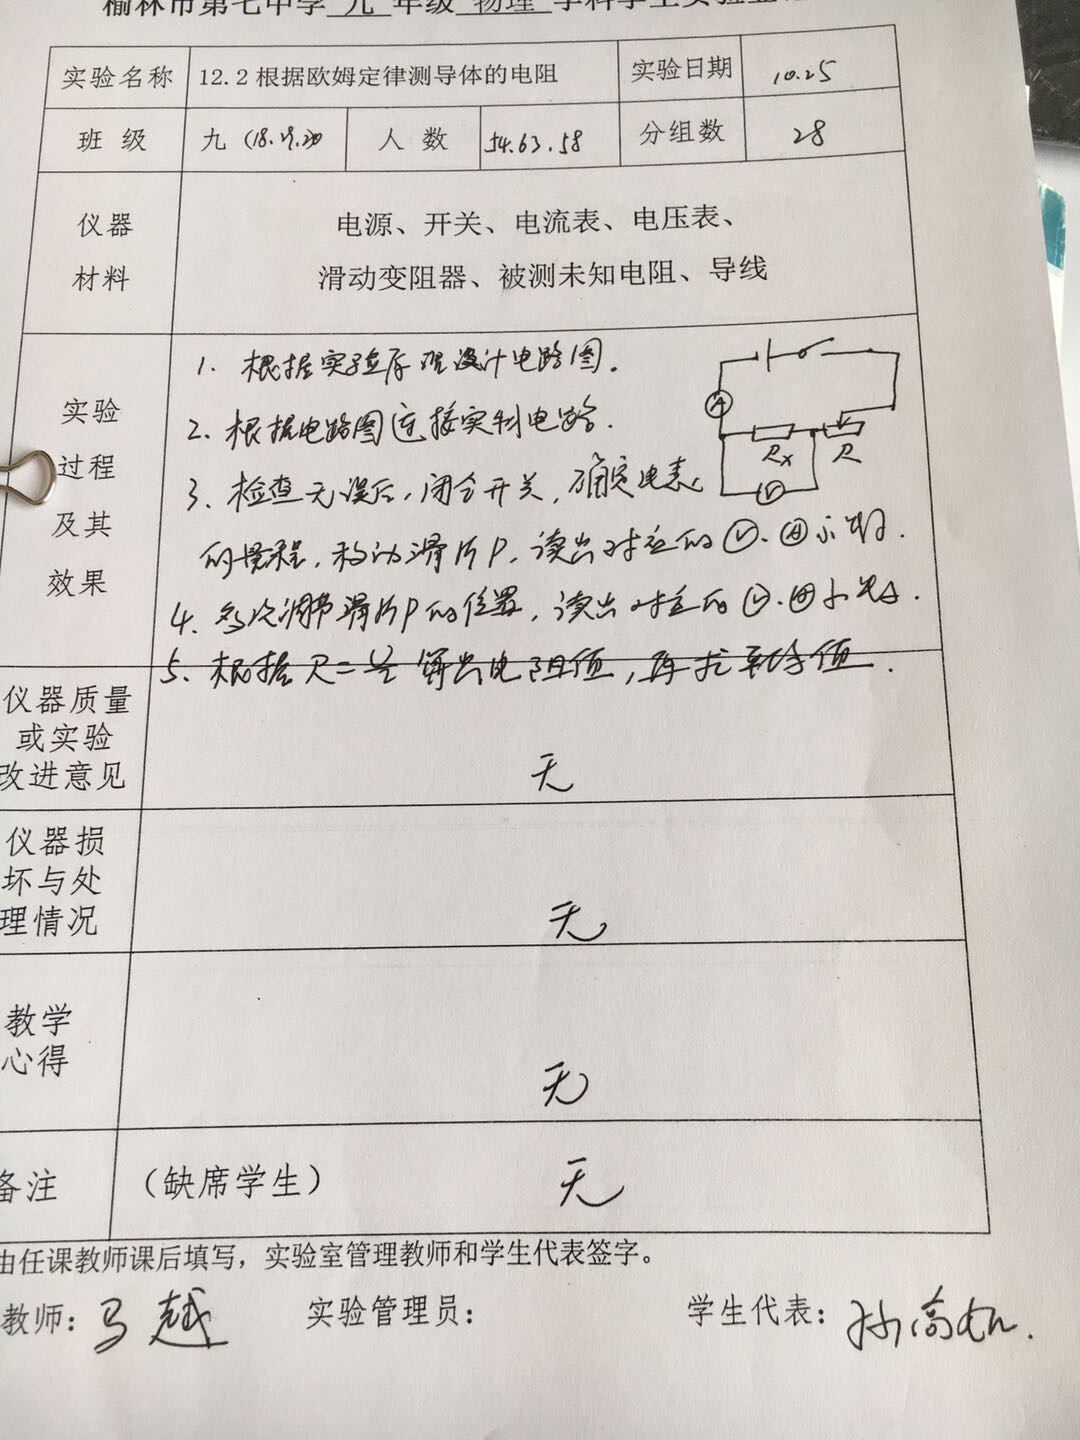 榆林市第七中学 九 年级 物理 学科学生实验
实验名称 12.2根据欧姆定律测导体的电阻 实验日期 10.25
班 级 九（18.19.20 人 数 54.63.58 分组数 28
仪器
材料
电源、开关、电流表、电压表、
滑动变阻器、被测未知电阻、导线
实验
过程
及其
效果
1. 根据实验原理设计电路图.
2. 根据电路图连接实物电路.
3. 检查无误后,闭合开关,确定电表
的量程,移动滑片P,读出对应的Ⓥ.Ⓐ示数.
4. 多次调节滑片P的位置,读出对应的Ⓥ.Ⓐ示数.
5. 根据R=U/I算出电阻值,再求平均值.
A
Rx R
V
仪器质量
或实验
改进意见
无
仪器损
坏与处
理情况
无
教学
心得
无
备注 （缺席学生） 无
由任课教师课后填写，实验室管理教师和学生代表签字。
教师：马越 实验管理员： 学生代表：孙高